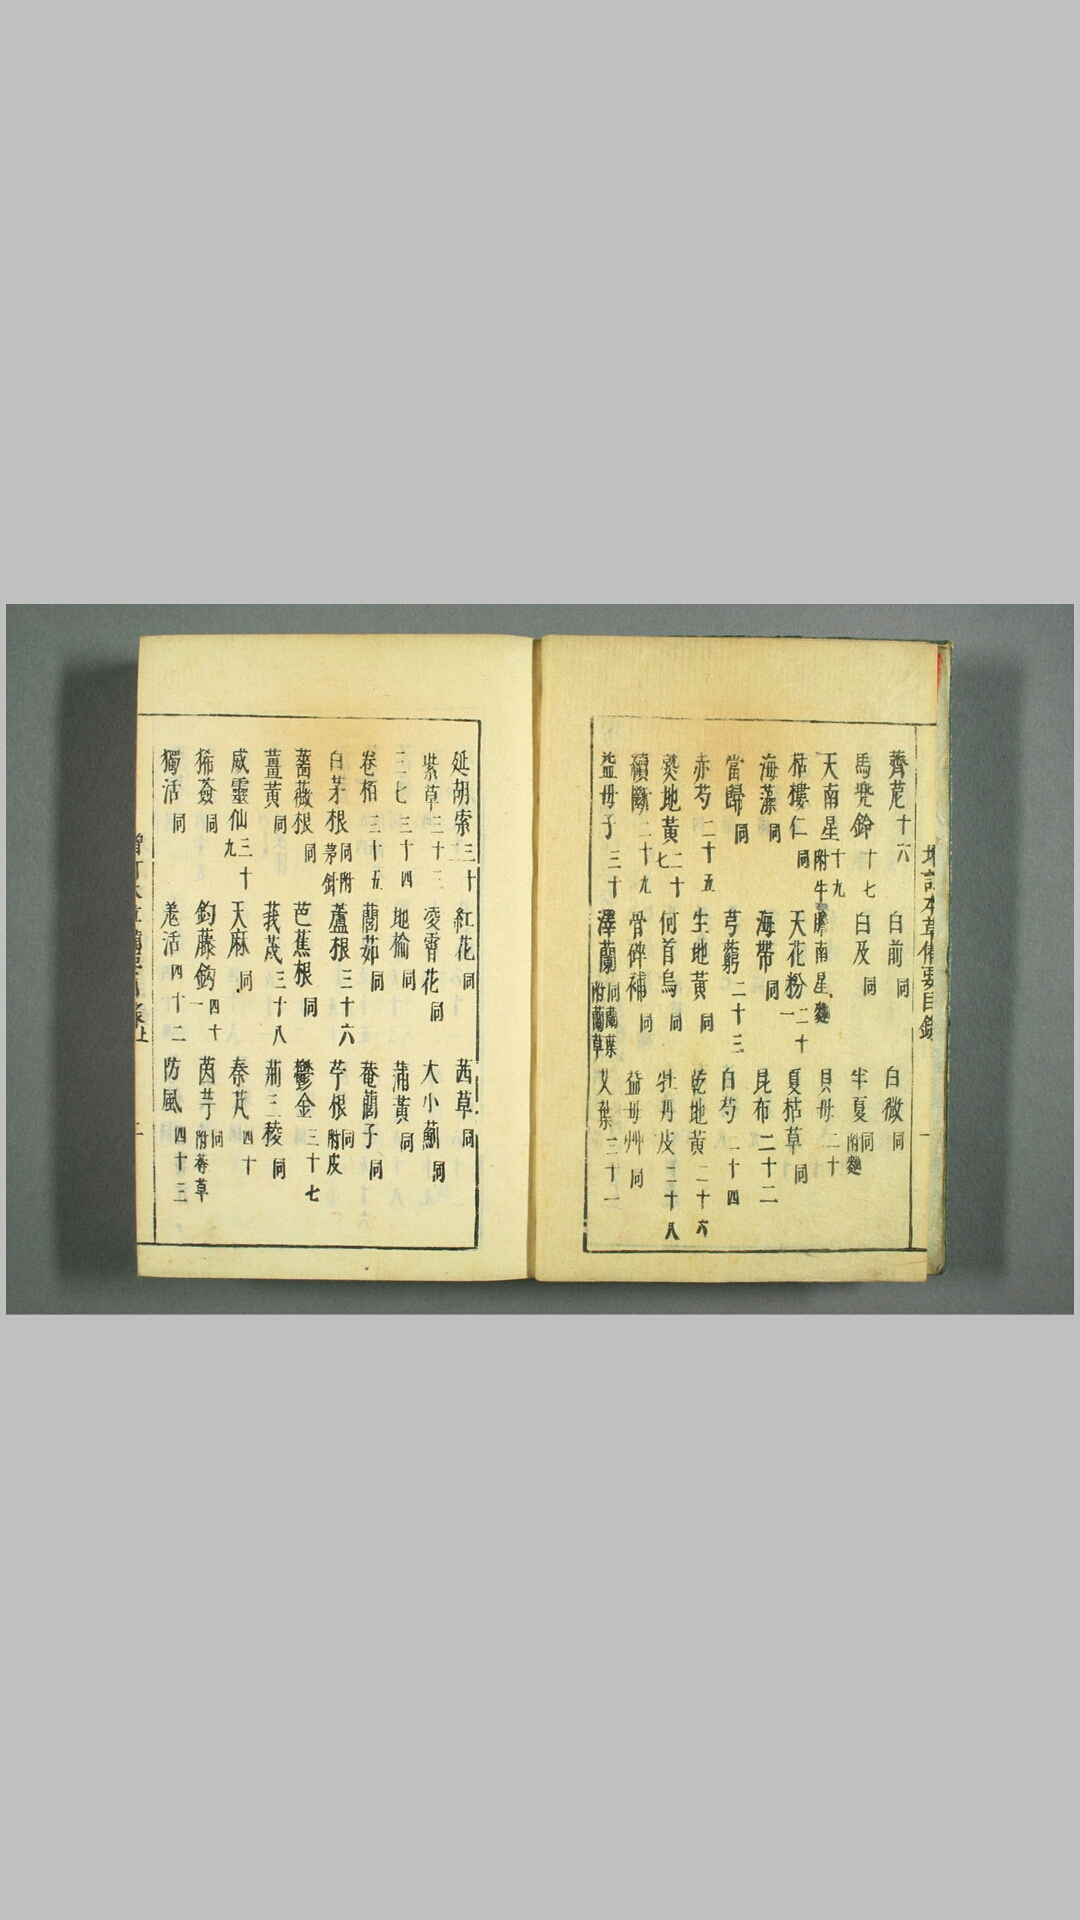 薺苨十六 白前同 白微同
馬兜鈴十七 白及同 半夏同附麯
天南星十九附牛膽南星麯 貝母二十
栝樓仁同 天花粉二十一 夏枯草同
海藻同 海帶同 昆布二十二
當歸同 芎藭二十三 白芍二十四
赤芍二十五 生地黃同 乾地黃二十六
熟地黃二十七 何首烏同 牡丹皮二十八
續斷二十九 骨碎補同 益母艸同
益母子三十 澤蘭同附蘭草蘭葉 艾葉三十一
本草備要目錄 一
延胡索三十二 紅花同 茜草同
紫草三十三 凌霄花同 大小薊同
三七三十四 地榆同 蒲黃同
卷栢三十五 䕡茹同 菴䕡子同
白茅根同附茅針 蘆根三十六 苧根同附皮
薔薇根同 芭蕉根同 鬱金三十七
薑黃同 莪茂三十八 荊三稜同
威靈仙三十九 天麻同 秦艽四十
豨薟同 鈎藤鈎四十一 茵芋同附莽草
獨活同 羌活四十二 防風四十三